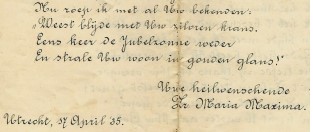 Nu roep ik met al Uw bekenden:
„Weest blijde met Uw zilveren krans.
Eens keer de Jubelzonne weder
En strale Uw woon in gouden glans!"
Uwe heilwenschende
Zr Maria Maxima.
Utrecht, 17 April 35.